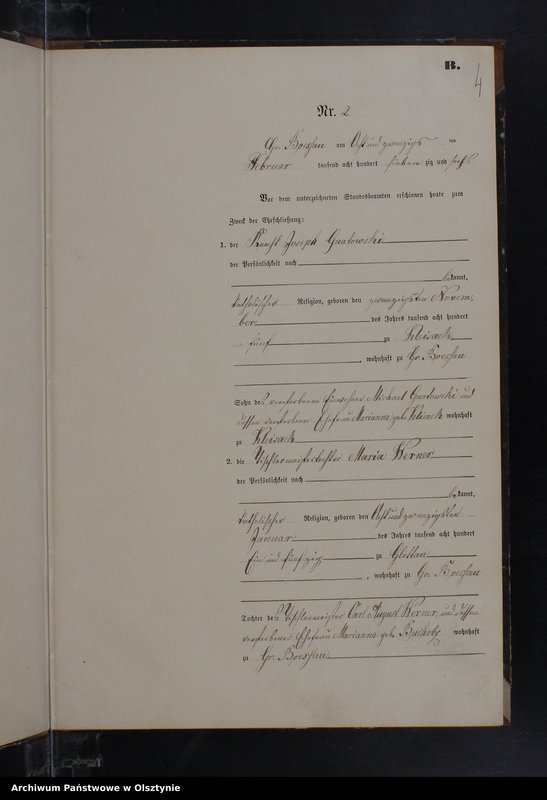 B.
4
Nr. 2
Gr. Boessau am Acht und zwanzigs ten
Februar tausend acht hundert sieben zig und sechs
Vor dem unterzeichneten Standesbeamten erschienen heute zum
Zweck der Eheschließung:
1. der Knecht Joseph Gnatowski
der Persönlichkeit nach
be kannt,
katholischer Religion, geboren den zwanzigsten Novem-
ber des Jahres tausend acht hundert
fünf zu Kleisack
, wohnhaft zu Gr. Boessau
Sohn des verstorbenen Michael Gnatowski und
dessen verstorbener Ehefrau Marianna geb. Klimek wohnhaft
zu Kleisack
2. die Tischlermeistertochter Maria Kerner
der Persönlichkeit nach
be kannt,
katholischer Religion, geboren den Acht und zwanzigsten
Januar des Jahres tausend acht hundert
Ein und fünfzig zu Glottau
, wohnhaft zu Gr. Boessau
Tochter des Tischlermeister Carl August Kerner und dessen
verstorbener Ehefrau Marianna geb. wohnhaft
zu Gr. Boessau
Archiwum Państwowe w Olsztynie